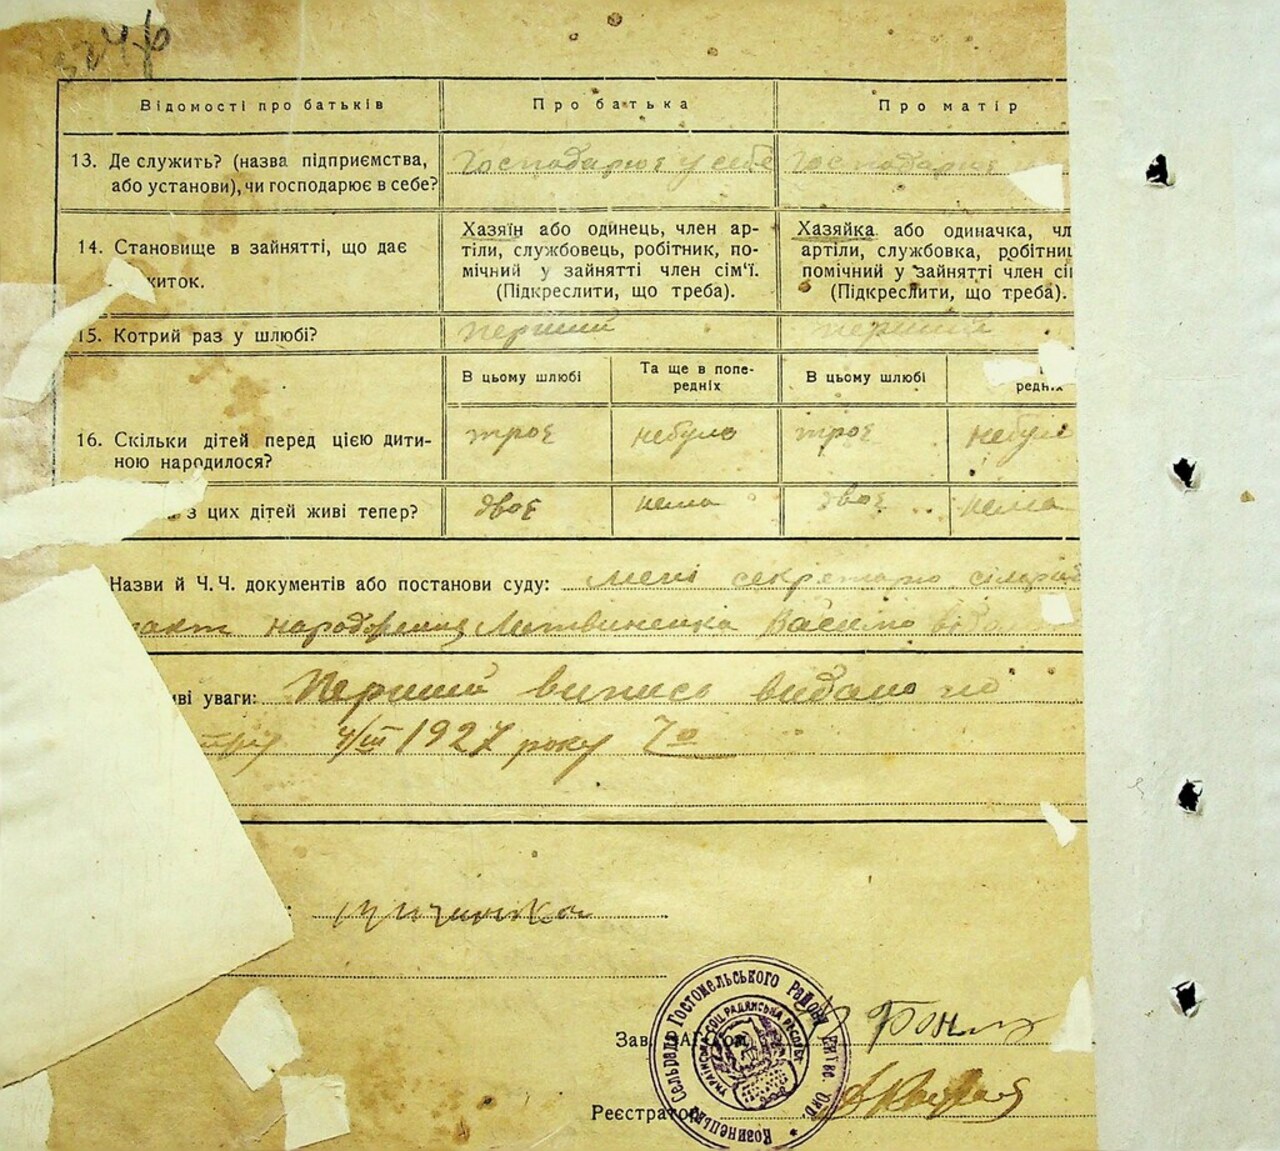 Відомості про батьків
Про батька
Про матір
13. Де служить? (назва підприємства,
або установи), чи господарює в себе?
Господарює у себе
Господарює
14. Становище в зайнятті, що дає
житок.
Хазяїн або одинець, член ар-
тіли, службовець, робітник, по-
мічний у зайнятті член сім'ї.
(Підкреслити, що треба).
Хазяйка або одиначка, чл
артіли, службовка, робітниц
помічний у зайнятті член сі
(Підкреслити, що треба).
15. Котрий раз у шлюбі?
перший
перший
В цьому шлюбі
Та ще в попе-
редніх
В цьому шлюбі
редніх
16. Скільки дітей перед цією дити-
ною народилося?
троє
небуло
троє
небуло
з цих дітей живі тепер?
двоє
нема
двоє
нема
Назви й Ч.Ч. документів або постанови суду:
мені секретарю
народження Литвиненка
ві уваги: Перший випись видано
4/III 1927 року
Зав.
Реєстратор
Козинецька сельрада Гостомельського Району Київс. Окр.
Українська Соц. Радянська Респуб.